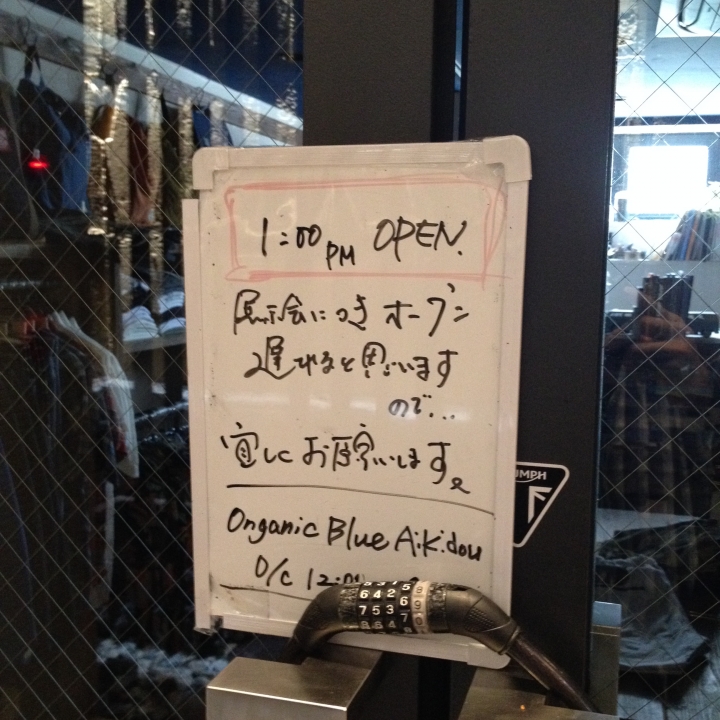 1:00 PM OPEN.
展示会につきオープン
遅れると思います
ので...
宜しくお願いします。
Organic Blue Aikidou
O/C 12:0
UMPH
6 4 2 6
7 5 3